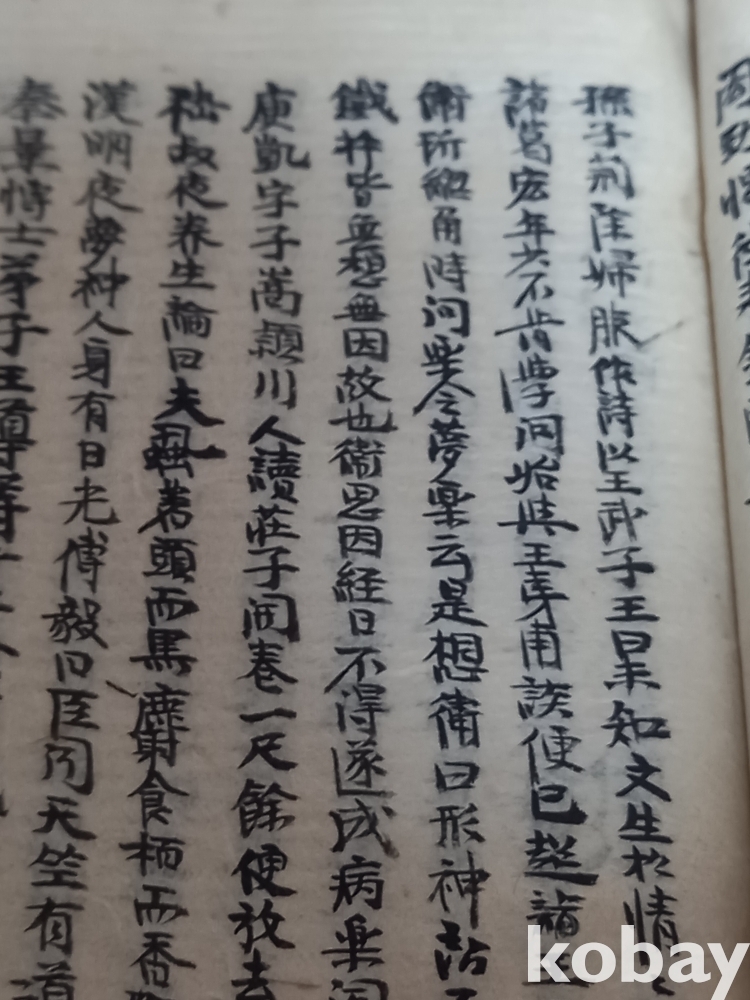 孫子荆除婦服作詩以王武子王曰未知文生於情
諸葛宏年少不肯學問始與王夷甫談便已超詣王
衛玠總角時问樂令夢樂云是想衛曰形神所不
鐵杵皆無想無因故也衛思因経日不得遂成病樂闻
庾凱字子嵩潁川人讀莊子開卷一尺餘便放去
嵇叔夜养生論曰夫虱着頭而黑麝食栢而香
漢明夜夢神人身有日光傅毅曰臣闻天竺有道
秦景博士弟子王遵等
kobay